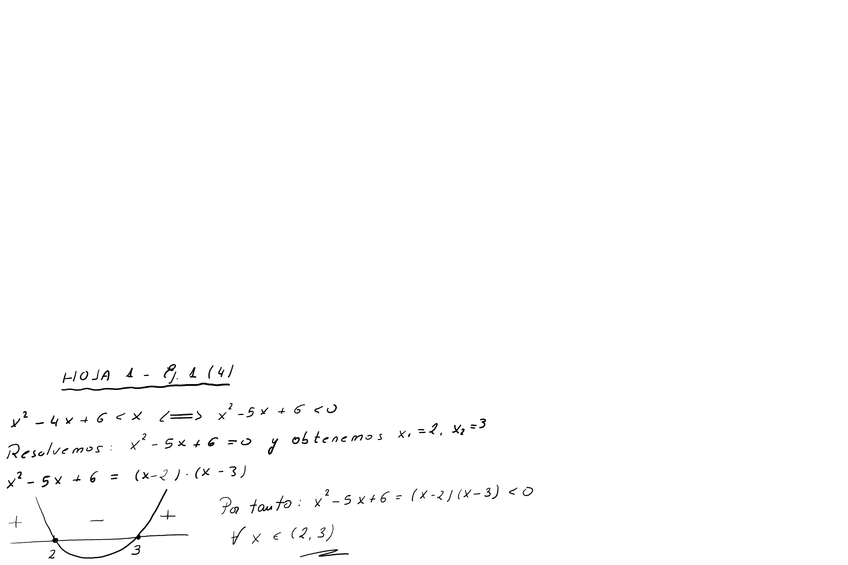 HOJA 1 - Ej. 1 (4)
x² - 4x + 6 < x <=> x² - 5x + 6 < 0
Resolvemos: x² - 5x + 6 = 0 y obtenemos x₁ = 2, x₂ = 3
x² - 5x + 6 = (x-2)·(x-3)
+ - +
2 3
Por tanto: x² - 5x + 6 = (x-2)(x-3) < 0
∀ x ∈ (2,3)